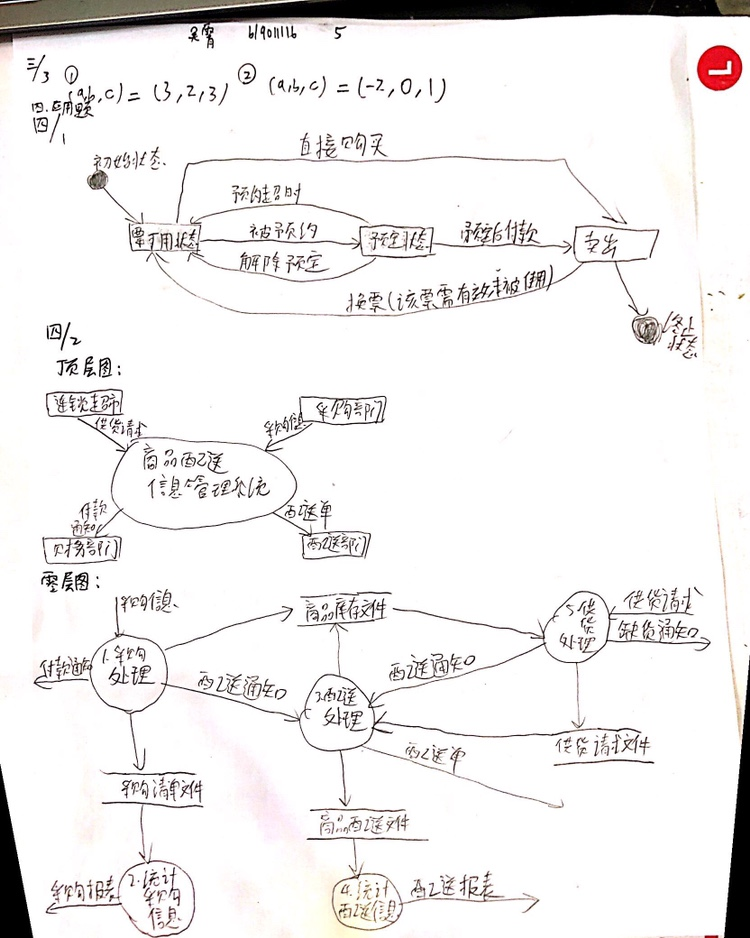 吴霄 61901116 5
三/3 ① (a,b,c) = (3,2,3) ② (a,b,c) = (-2,0,1)
四.应用题
四/1
直接购买
初始状态
预约超时
票可用状态
被预约
预定状态
预定后付款
卖出
解除预定
换票(该票需有效未被使用)
终止状态
四/2
顶层图:
连锁超市
采购部门
供货请求
采购信息
商品配送
信息管理系统
付款
通知
配送单
财务部门
配送部门
零层图:
采购信息
商品库存文件
5.供货处理
供货请求
缺货通知
付款通知
1.采购
处理
配送通知
配送通知
3.配送
处理
供货请求文件
配送单
采购清单文件
商品配送文件
采购报表
2.统计
采购
信息
4.统计
配送信息
配送报表